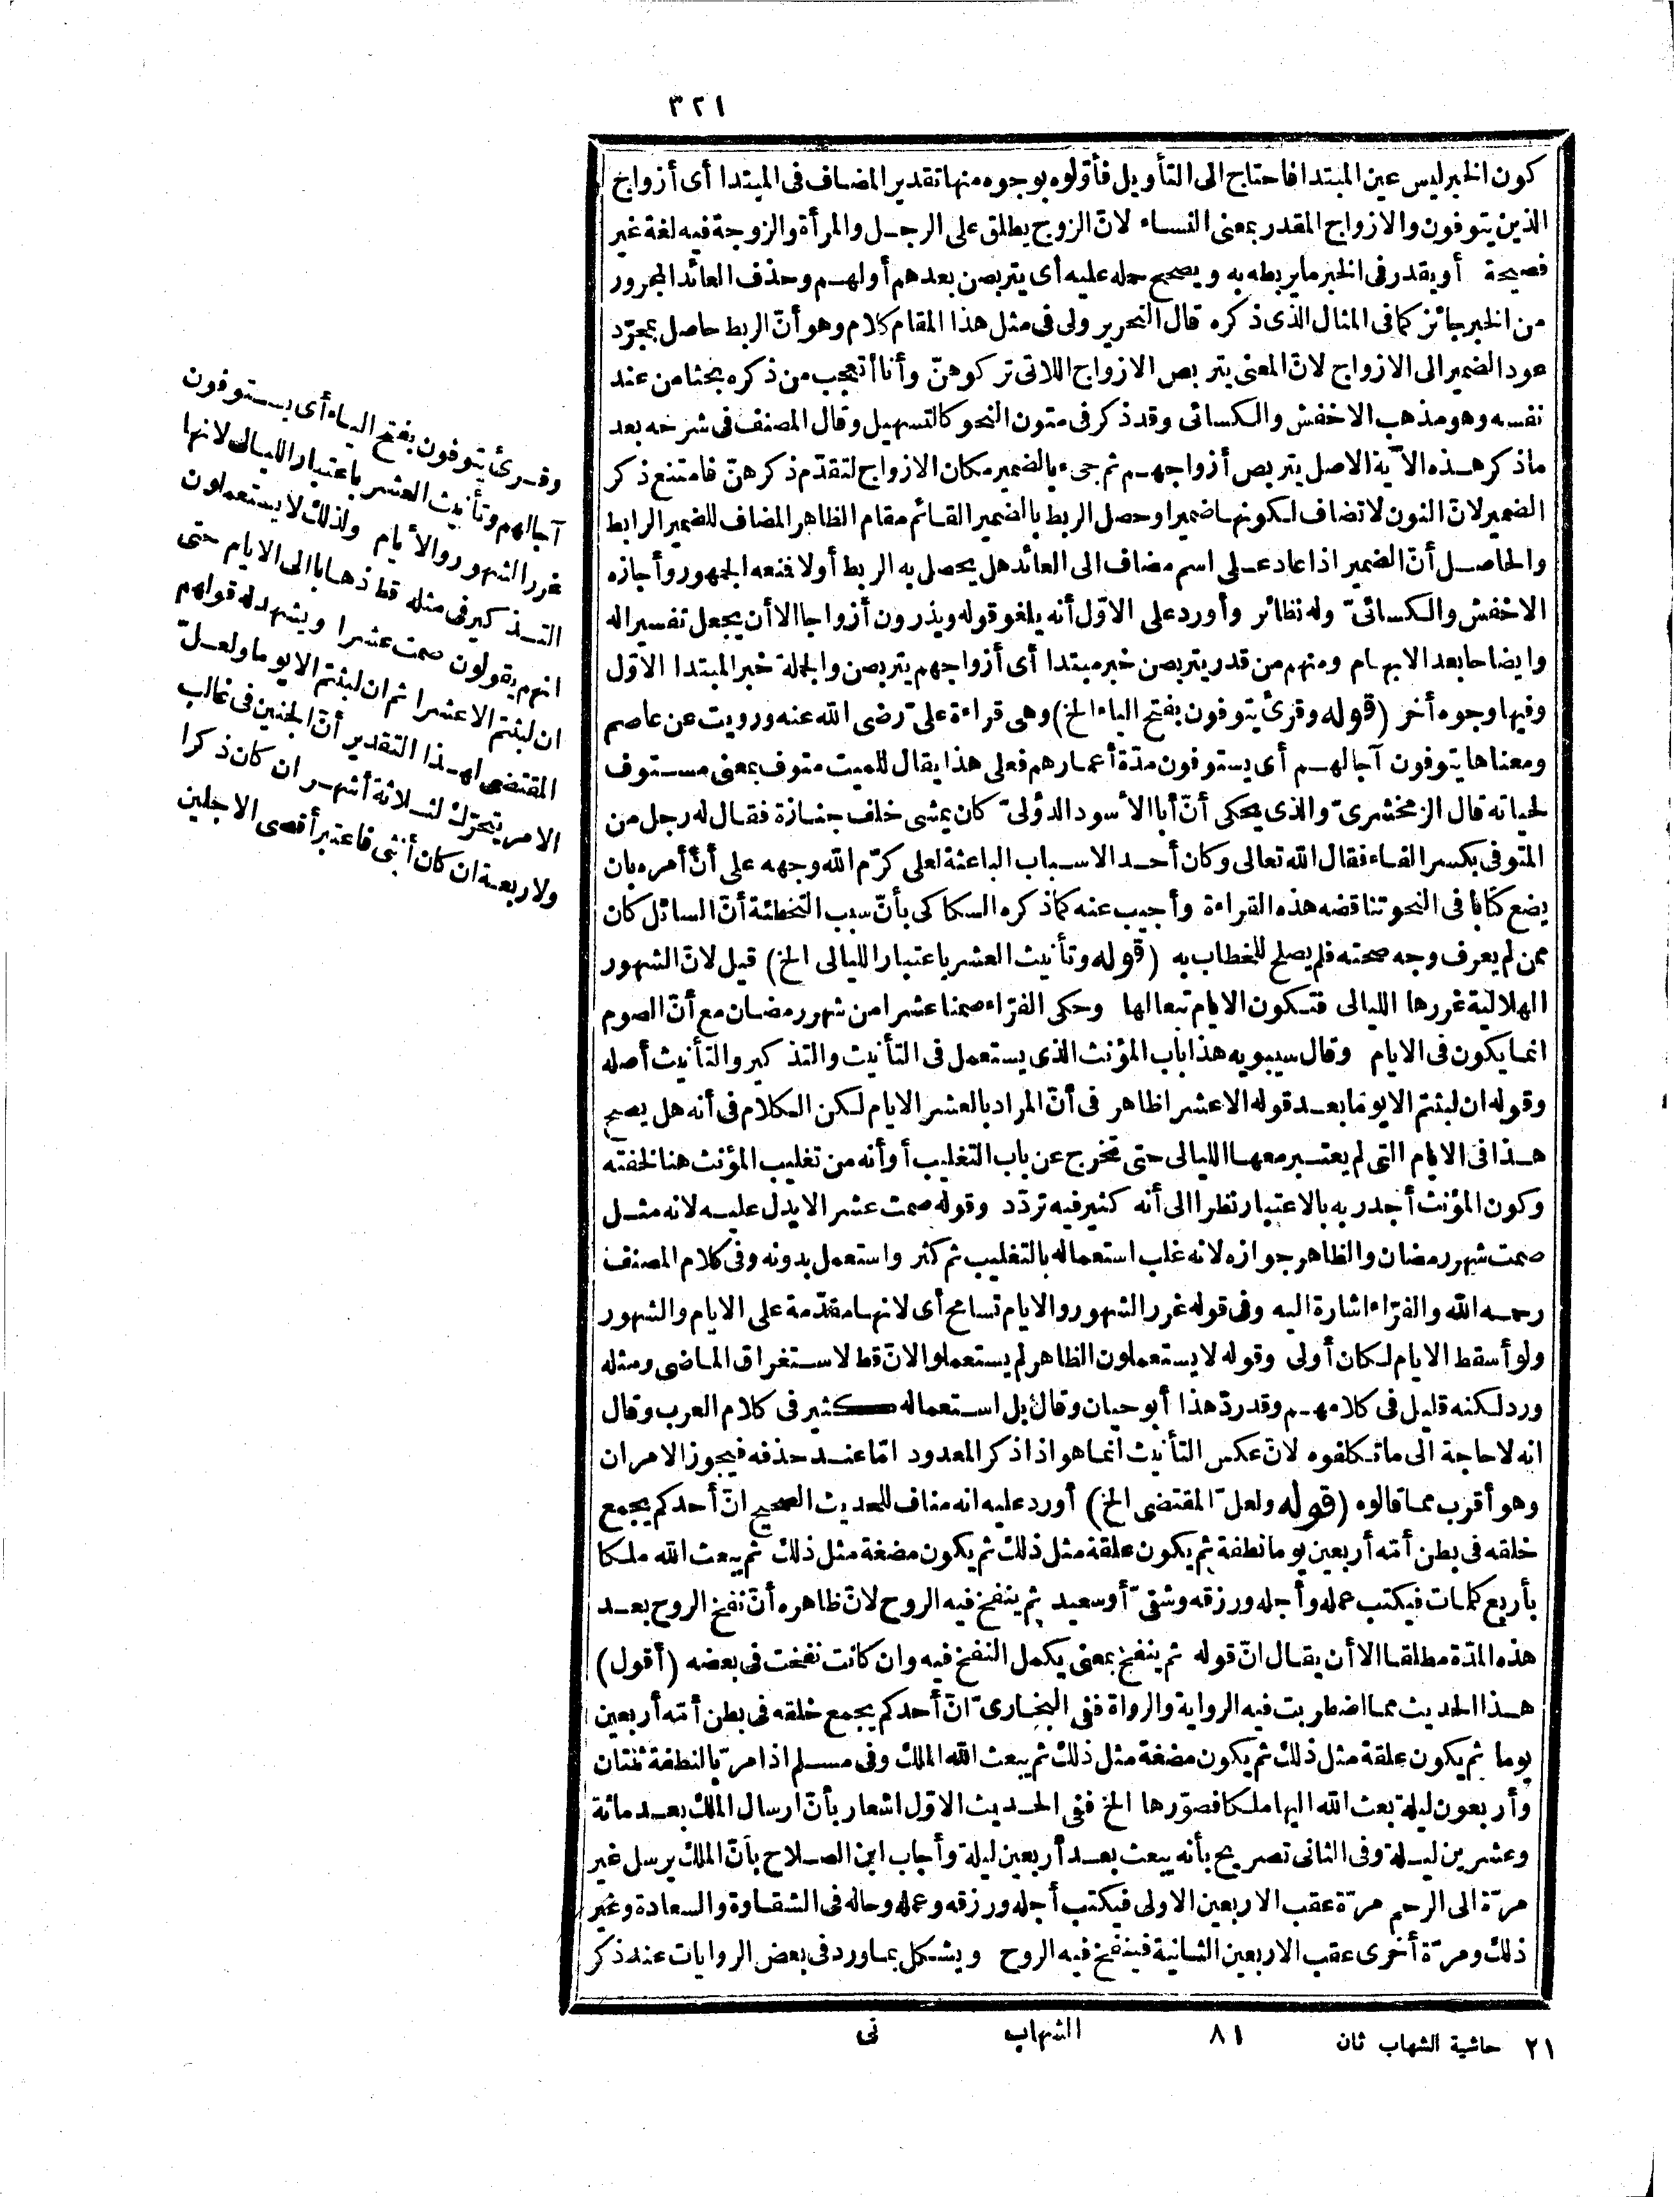 ٣٢١
كون الخبر ليس عين المبتدا فاحتاج الى التأويل فأوّلوه بوجوه منها تقدير المضاف فى المبتدا أى أزواج
الذين يتوفون والازواج المقدر بمعنى النساء لانّ الزوج يطلق على الرجل والمرأة والزوجة فيه لغة غير
فصيحة أو يقدر فى الخبر ما يربطه به ويصحح حمله عليه أى يتربصن بعدهم أو لهم وحذف العائد المجرور
من الخبر جائز كما فى المثال الذى ذكره قال النحرير ولى فى مثل هذا المقام كلام وهو أنّ الربط حاصل بمجرّد
عود الضمير الى الازواج لانّ المعنى يتربص الازواج اللاتى تركوهنّ وأنا أتعجب من ذكره بحثا من عند
نفسه وهو مذهب الاخفش والكسائى وقد ذكر فى متون النحو كالتسهيل وقال المصنف فى شرحه بعد
ما ذكر هذه الآية الاصل يتربص أزواجهم ثم جىء بالضمير مكان الازواج لتقدّم ذكرهنّ فامتنع ذكر
الضمير لانّ النون لا تضاف لكونها ضميرا وحصل الربط بالضمير القائم مقام الظاهر المضاف للضمير الرابط
والحاصل أنّ الضمير اذا عاد على اسم مضاف الى العائد هل يحصل به الربط أولا فنعه الجمهور وأجازه
الاخفش والكسائىّ وله نظائر وأورد على الاوّل أنه يلغو قوله ويذرون أزواجا الا أن يجعل تفسيرا له
وايضاحا بعد الابهام ومنهم من قدر يتربصن خبر مبتدا أى أزواجهم يتربصن والجملة خبر المبتدا الاوّل
وفيها وجوه أخر (قوله وقرئ يتوفون بفتح الياء الخ) وهى قراءة علىّ رضى الله عنه ورويت عن عاصم
ومعناها يتوفون آجالهم أى يستوفون مدّة أعمارهم فعلى هذا يقال للميت متوف بمعنى مستوف
لحياته قال الزمخشرىّ والذى يحكى أنّ أبا الأسود الدؤلىّ كان يمشى خلف جنازة فقال له رجل من
المتوفى بكسر الفاء فقال الله تعالى وكان أحد الاسباب الباعثة لعلى كرّم الله وجهه على أنّ أمره بان
يضع كتابا فى النحو تناقضه هذه القراءة وأجيب عنه كما ذكره السكاكى بأنّ سبب التخطئة أنّ السائل كان
ممن لم يعرف وجه صحته فلم يصلح للخطاب به (قوله وتأنيث العشر باعتبار الليالى الخ) قيل لانّ الشهور
الهلالية غررها الليالى فتكون الايام تبعا لها وحكى الفرّاء صمنا عشرا من شهر رمضان مع أنّ الصوم
انما يكون فى الايام وقال سيبويه هذا باب المؤنث الذى يستعمل فى التأنيث والتذكير والتأنيث أصله
وقوله ان لبثتم الا يوما بعد قوله الا عشرا ظاهر فى أنّ المراد بالعشر الايام لكن الكلام فى أنه هل يصح
هذا فى الايام التى لم يعتبر معها الليالى حتى تخرج عن باب التغليب أو أنه من تغليب المؤنث هنا لخفته
وكون المؤنث أجدر به بالاعتبار نظرا الى أنه كثير فيه تردّد وقوله صمت عشرا لا يدل عليه لانه مثل
صمت شهر رمضان والظاهر جوازه لانه غلب استعماله بالتغليب ثم كثر واستعمل بدونه وفى كلام المصنف
رحمه الله والفرّاء اشارة اليه وفى قوله غرر الشهور والايام تسامح أى لانها مقدّمة على الايام والشهور
ولو أسقط الايام لكان أولى وقوله لا يستعملون الظاهر لم يستعملوا لانّ قط لاستغراق الماضى ومثله
ورد لكنه قليل فى كلامهم وقد ردّ هذا أبو حيان وقال بل استعماله كثير فى كلام العرب وقال
انه لا حاجة الى ما تكلفوه لانّ عكس التأنيث انما هو اذا ذكر المعدود امّا عند حذفه فيجوز الامران
وهو أقرب مما قالوه (قوله ولعلّ المقتضى الخ) أورد عليه انه مناف للحديث الصحيح انّ أحدكم يجمع
خلقه فى بطن أمّه أربعين يوما نطفة ثم يكون علقة مثل ذلك ثم يكون مضغة مثل ذلك ثم يبعث الله ملكا
بأربع كلمات فيكتب عمله وأجله ورزقه وشقىّ أو سعيد ثم ينفخ فيه الروح لانّ ظاهره أنّ نفخ الروح بعد
هذه المدّة مطلقا الا أن يقال انّ قوله ثم ينفخ بمعنى يكمل النفخ فيه وان كانت نفخت فى بعضه (أقول)
هذا الحديث مما اضطربت فيه الرواية والرواة ففى البخارىّ انّ أحدكم يجمع خلقه فى بطن أمّه أربعين
يوما ثم يكون علقة مثل ذلك ثم يكون مضغة مثل ذلك ثم يبعث الله الملك وفى مسلم اذا مرّ بالنطفة ثنتان
وأربعون ليلة بعث الله اليها ملكا فصوّرها الخ ففى الحديث الاوّل اشعار بأنّ ارسال الملك بعد مائة
وعشرين ليلة وفى الثانى تصريح بأنه يبعث بعد أربعين ليلة وأجاب ابن الصلاح بأنّ الملك يرسل غير
مرّة الى الرحم مرّة عقب الاربعين الاولى فيكتب أجله ورزقه وعمله وحاله فى الشقاوة والسعادة وغير
ذلك ومرّة أخرى عقب الاربعين الثانية فينفخ فيه الروح ويشكل بما ورد فى بعض الروايات عنه ذكر
وقرئ يتوفون بفتح الياء أى يستوفون
آجالهم وتأنيث العشر باعتبار الليالى لانها
غرر الشهور والأيام ولذلك لا يستعملون
التذكير فى مثله قط ذهابا الى الايام حتى
انهم يقولون صمت عشرا ويشهد له قولهم
ان لبثتم الا عشرا ثم ان لبثتم الا يوما ولعلّ
المقتضى لهذا التقدير أنّ الجنين فى غالب
الامر يتحرّك لثلاثة أشهر ان كان ذكرا
ولاربعة ان كان أنثى فاعتبر أقصى الاجلين
٢١ حاشية الشهاب ثان ٨١ الشهاب نى